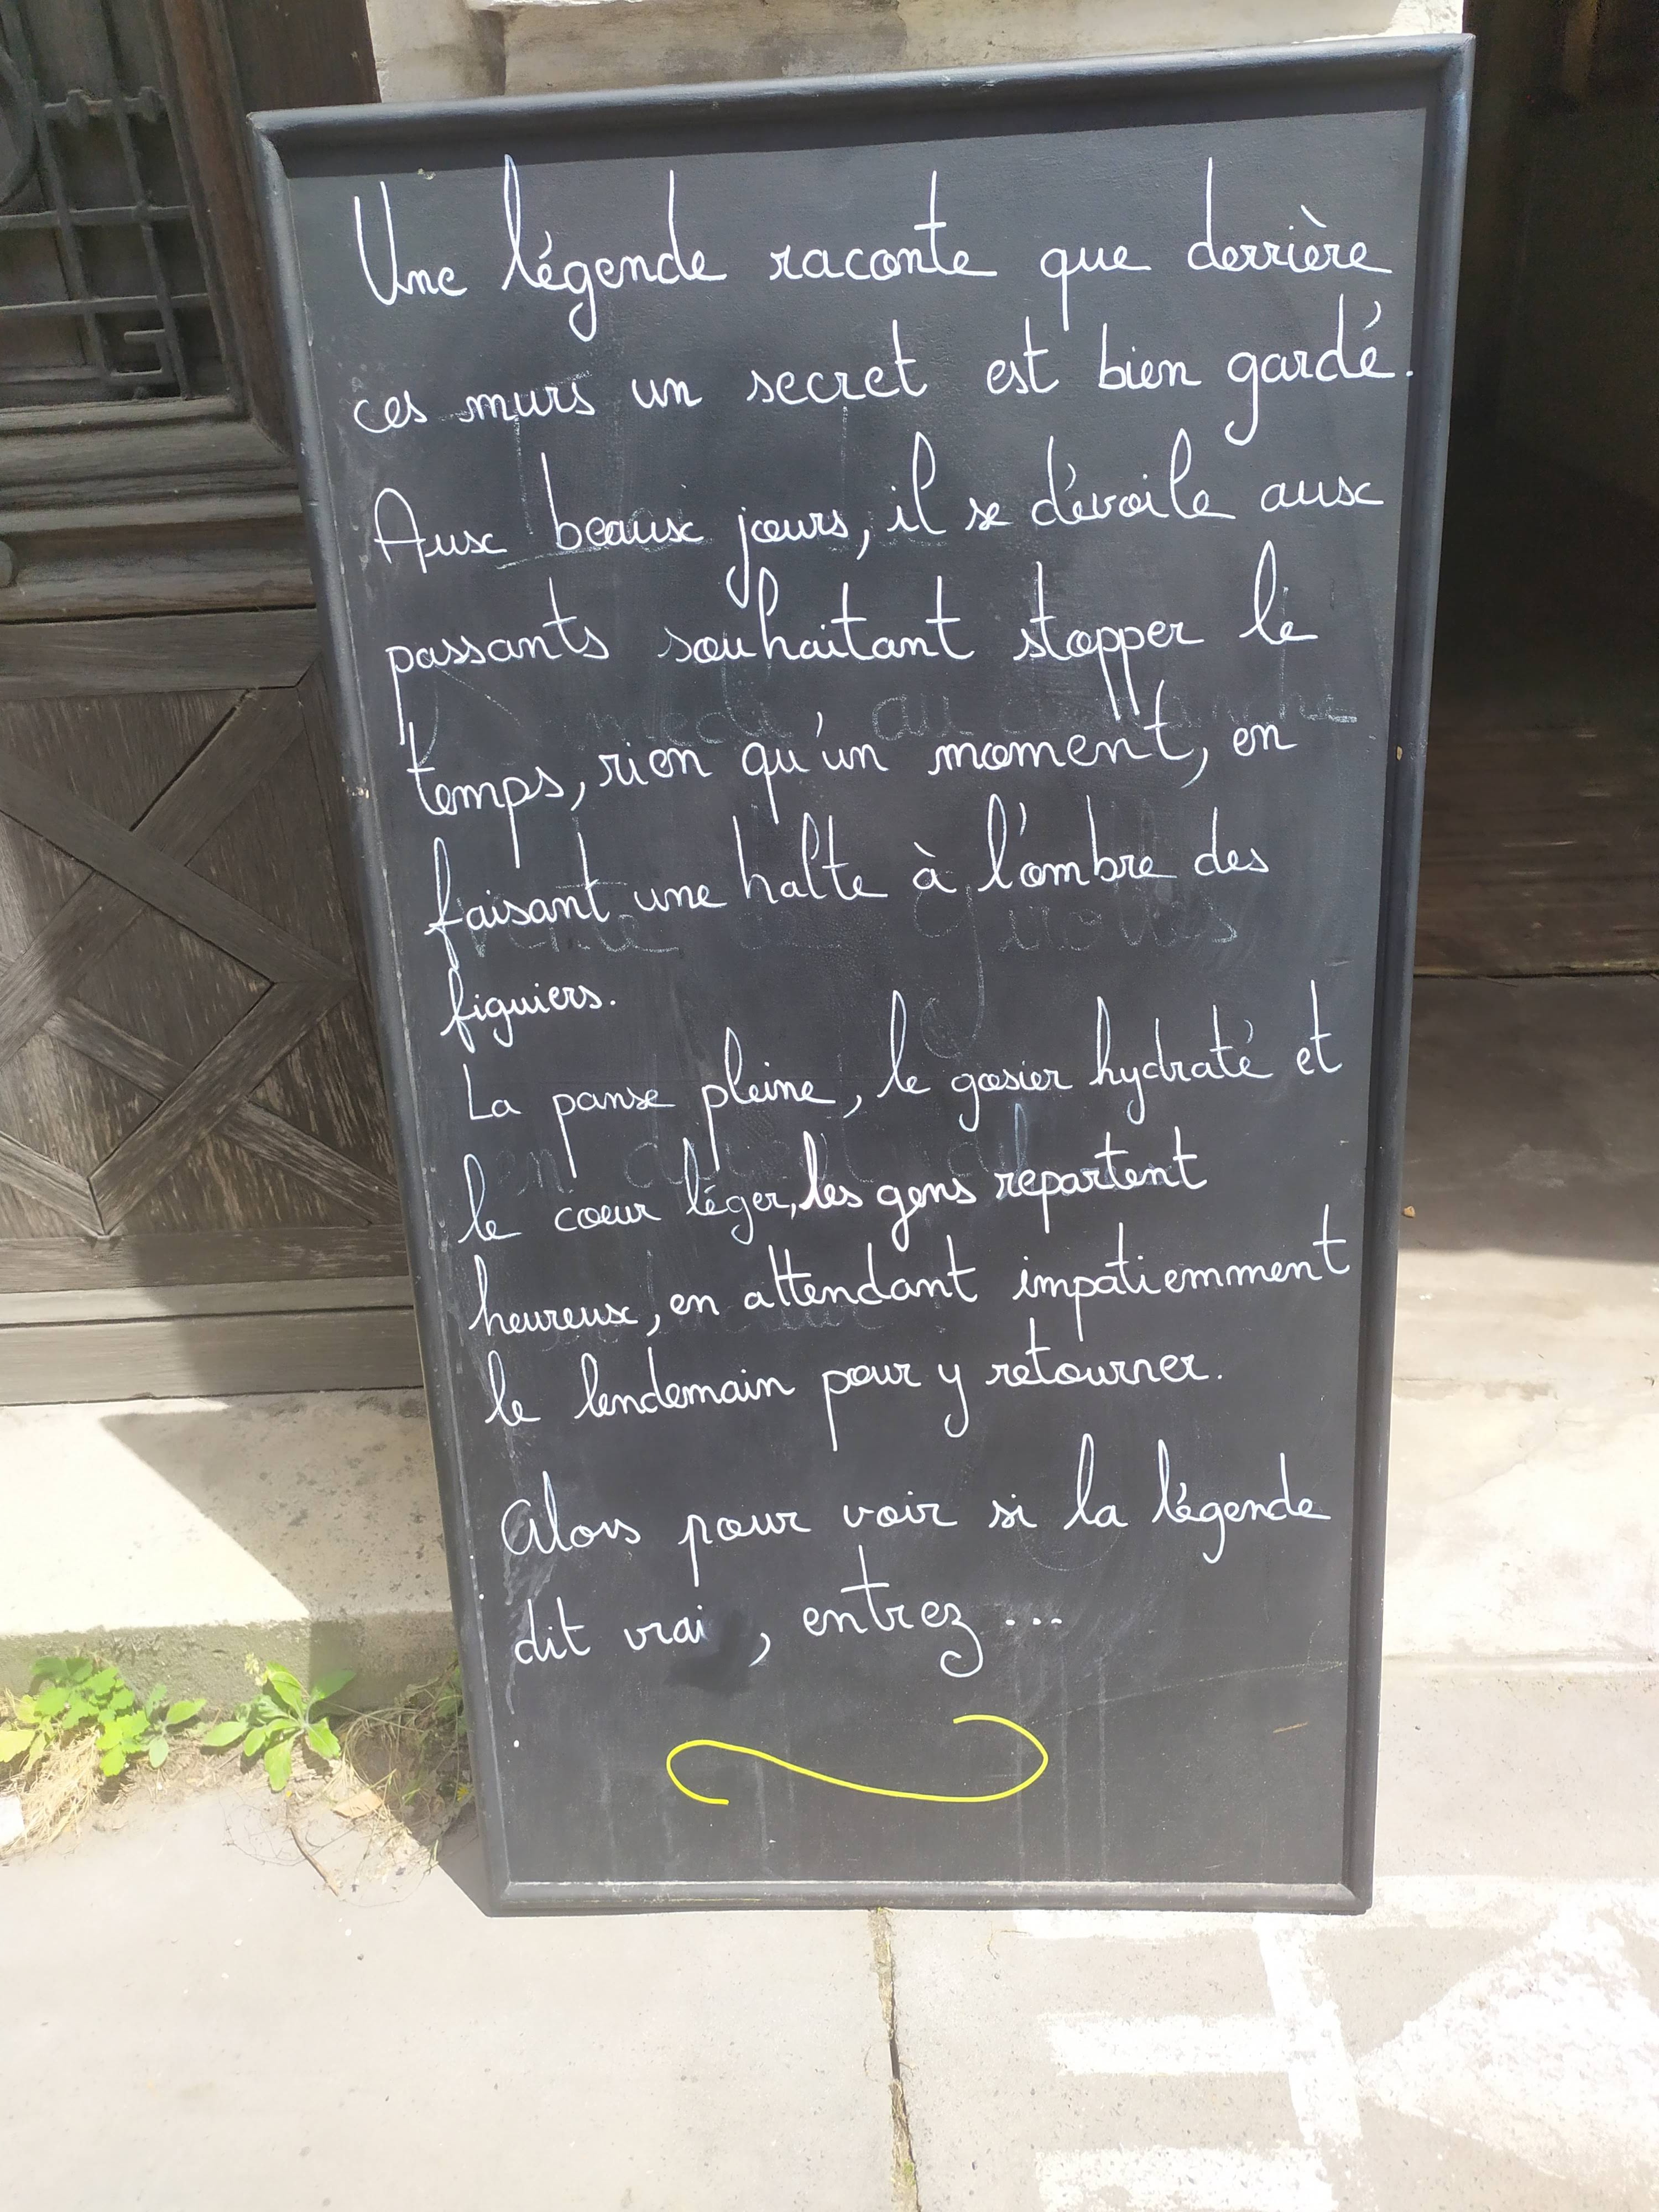 Une légende raconte que derrière
ces murs un secret est bien gardé.
Aux beaux jours, il se dévoile aux
passants souhaitant stopper le
temps, rien qu'un moment, en
faisant une halte à l'ombre des
figuiers.
La panse pleine, le gosier hydraté et
le coeur léger, les gens repartent
heureux, en attendant impatiemment
le lendemain pour y retourner.
Alors pour voir si la légende
dit vrai , entrez ...